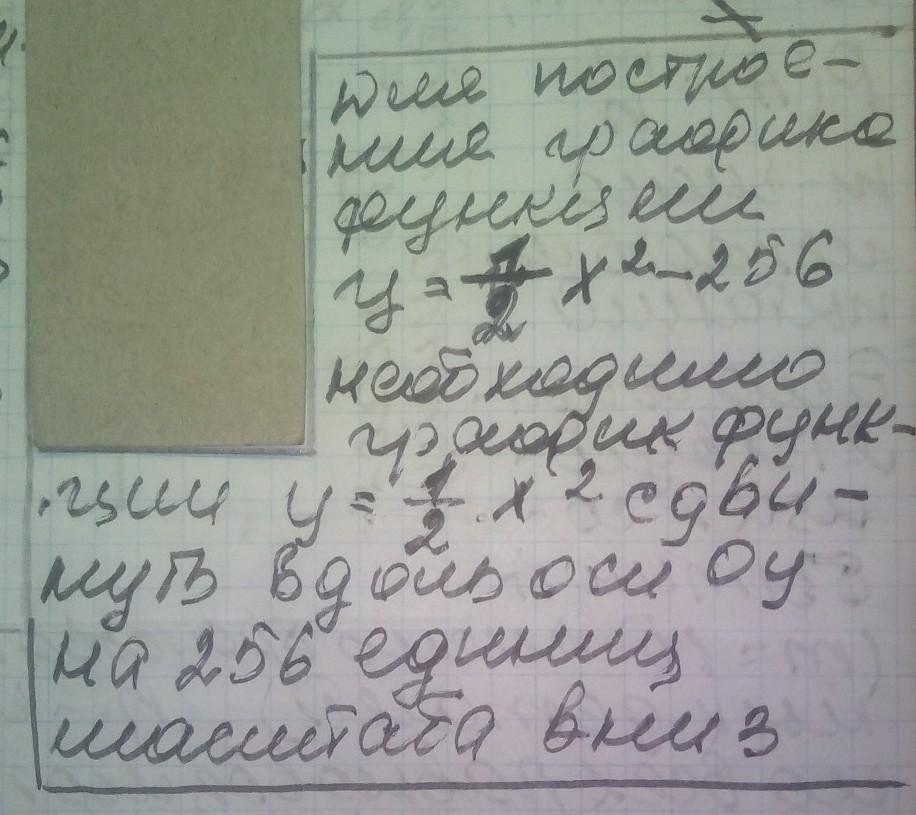 Для построе-
ния графика
функции
у = 1/2 х² - 256
необходимо
график функ-
ции у = 1/2 х² сдви-
нуть вдоль оси Оу
на 256 единиц
масштаба вниз